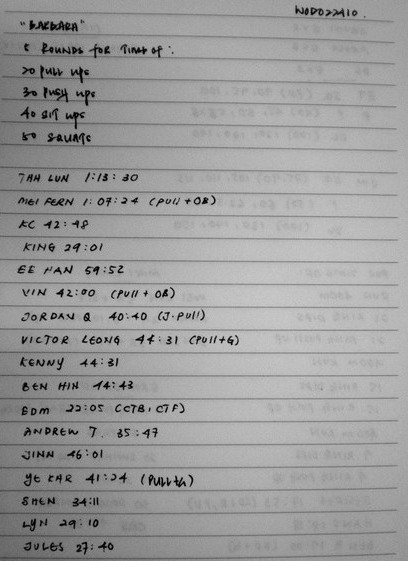 WOD022410.
"BARBARA"
5 ROUNDS FOR TIME OF:
20 PULL UPS
30 PUSH UPS
40 SIT UPS
50 SQUATS
TAH LUN 1:13:30
MEI FERN 1:07:24 (PULL + OB)
KC 42:48
KING 29:01
EE HAN 59:52
VIN 42:00 (PULL + OB)
JORDAN Q 40:40 (J.PULL)
VICTOR LEONG 44:31 (PULL+G)
KENNY 44:31
BEN HIN 44:43
EDM 22:05 (CTB, CTF)
ANDREW T. 35:47
JINN 46:01
YE KAR 41:24 (PULL+G)
SHEN 34:11
LYN 29:10
JULES 27:40